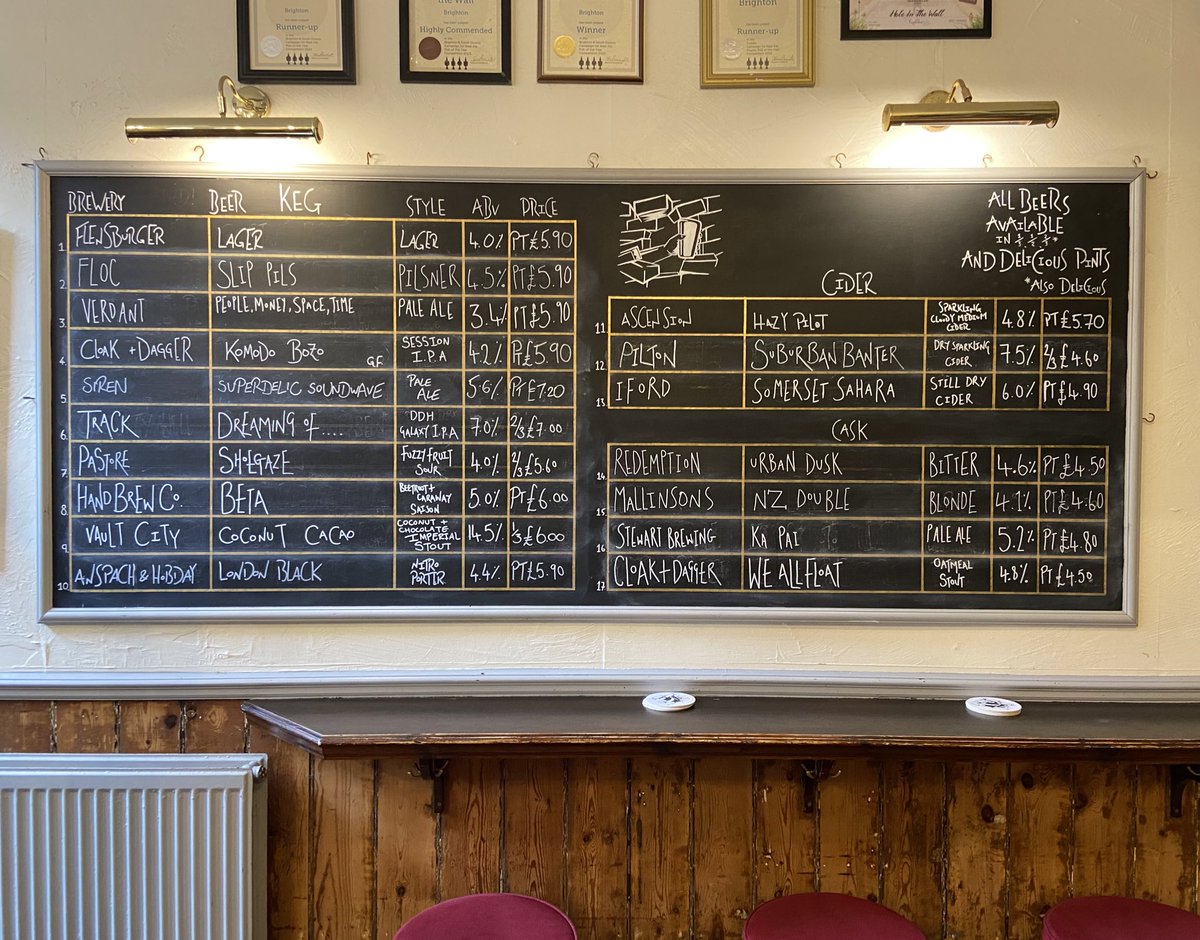 Brighton
Runner-up
the Wall
Brighton
Highly Commended
Brighton
Winner
Brighton
Runner-up
Hole In The Wall
BREWERY BEER KEG STYLE ABV PRICE
1. FLENSBURGER LAGER LAGER 4.0% PT £5.90
2. FLOC SLIP PILS PILSNER 4.5% PT £5.90
3. VERDANT PEOPLE, MONEY, SPACE, TIME PALE ALE 3.4% PT £5.90
4. CLOAK + DAGGER KOMODO BOZO G.F. SESSION I.P.A 4.2% PT £5.90
5. SIREN SUPERDELIC SOUNDWAVE PALE ALE 5.6% PT £7.20
6. TRACK DREAMING OF.... DDH GALAXY I.P.A 7.0% 2/3 £7.00
7. PASTORE SHOEGAZE FUZZY FRUIT SOUR 4.0% 2/3 £5.60
8. HAND BREW CO. BETA BEETROOT + CARAWAY SAISON 5.0% PT £6.00
9. VAULT CITY COCONUT CACAO COCONUT + CHOCOLATE IMPERIAL STOUT 14.5% 1/3 £6.00
10. ANSPACH & HOBDAY LONDON BLACK NITRO PORTER 4.4% PT £5.90
ALL BEERS
AVAILABLE
IN
AND DELICIOUS PINTS
*ALSO DELICIOUS
CIDER
11. ASCENSION HAZY PILOT SPARKLING CLOUDY MEDIUM CIDER 4.8% PT £5.70
12. PILTON SUBURBAN BANTER DRY SPARKLING CIDER 7.5% 2/3 £4.60
13. IFORD SOMERSET SAHARA STILL DRY CIDER 6.0% PT £4.90
CASK
14. REDEMPTION URBAN DUSK BITTER 4.6% PT £4.50
15. MALLINSONS NZ DOUBLE BLONDE 4.1% PT £4.60
16. STEWART BREWING KA PAI PALE ALE 5.2% PT £4.80
17. CLOAK + DAGGER WE ALL FLOAT OATMEAL STOUT 4.8% PT £4.50